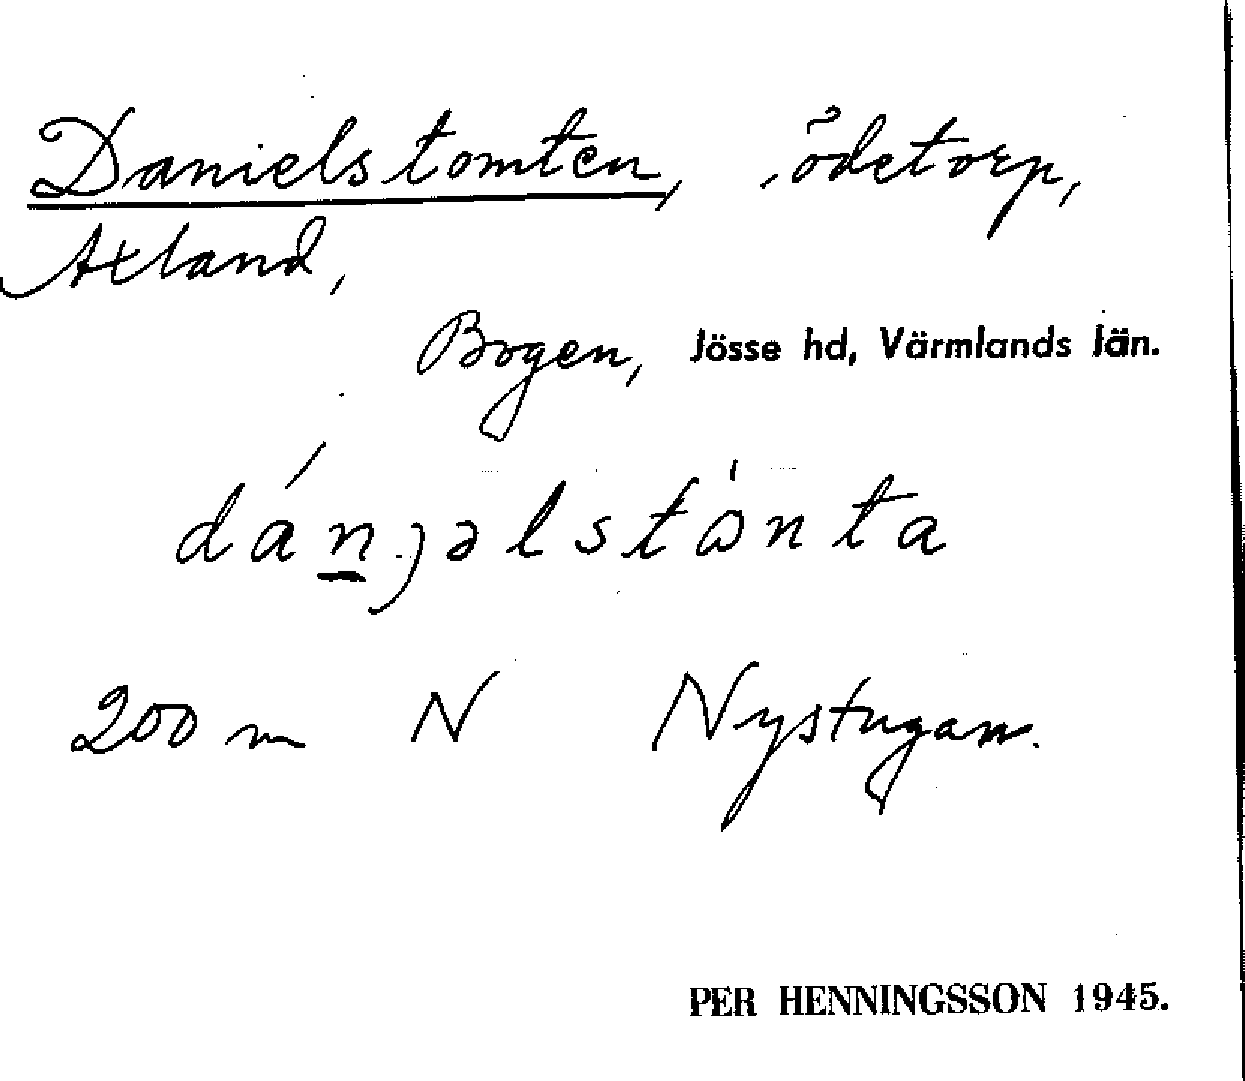 Danielstomten, ödetorp,
Axland,
Bogen, Jösse hd, Värmlands län.
dán̲jəlstὼnta
200 m N Nystugan.
PER HENNINGSSON 1945.